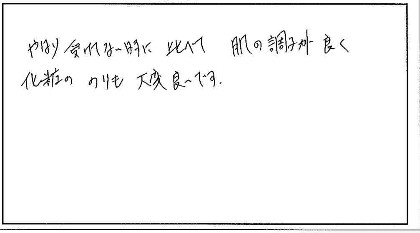 やはり 飲れない時に 比べて 肌の調子が良く
化粧の のりも 大変良いです.